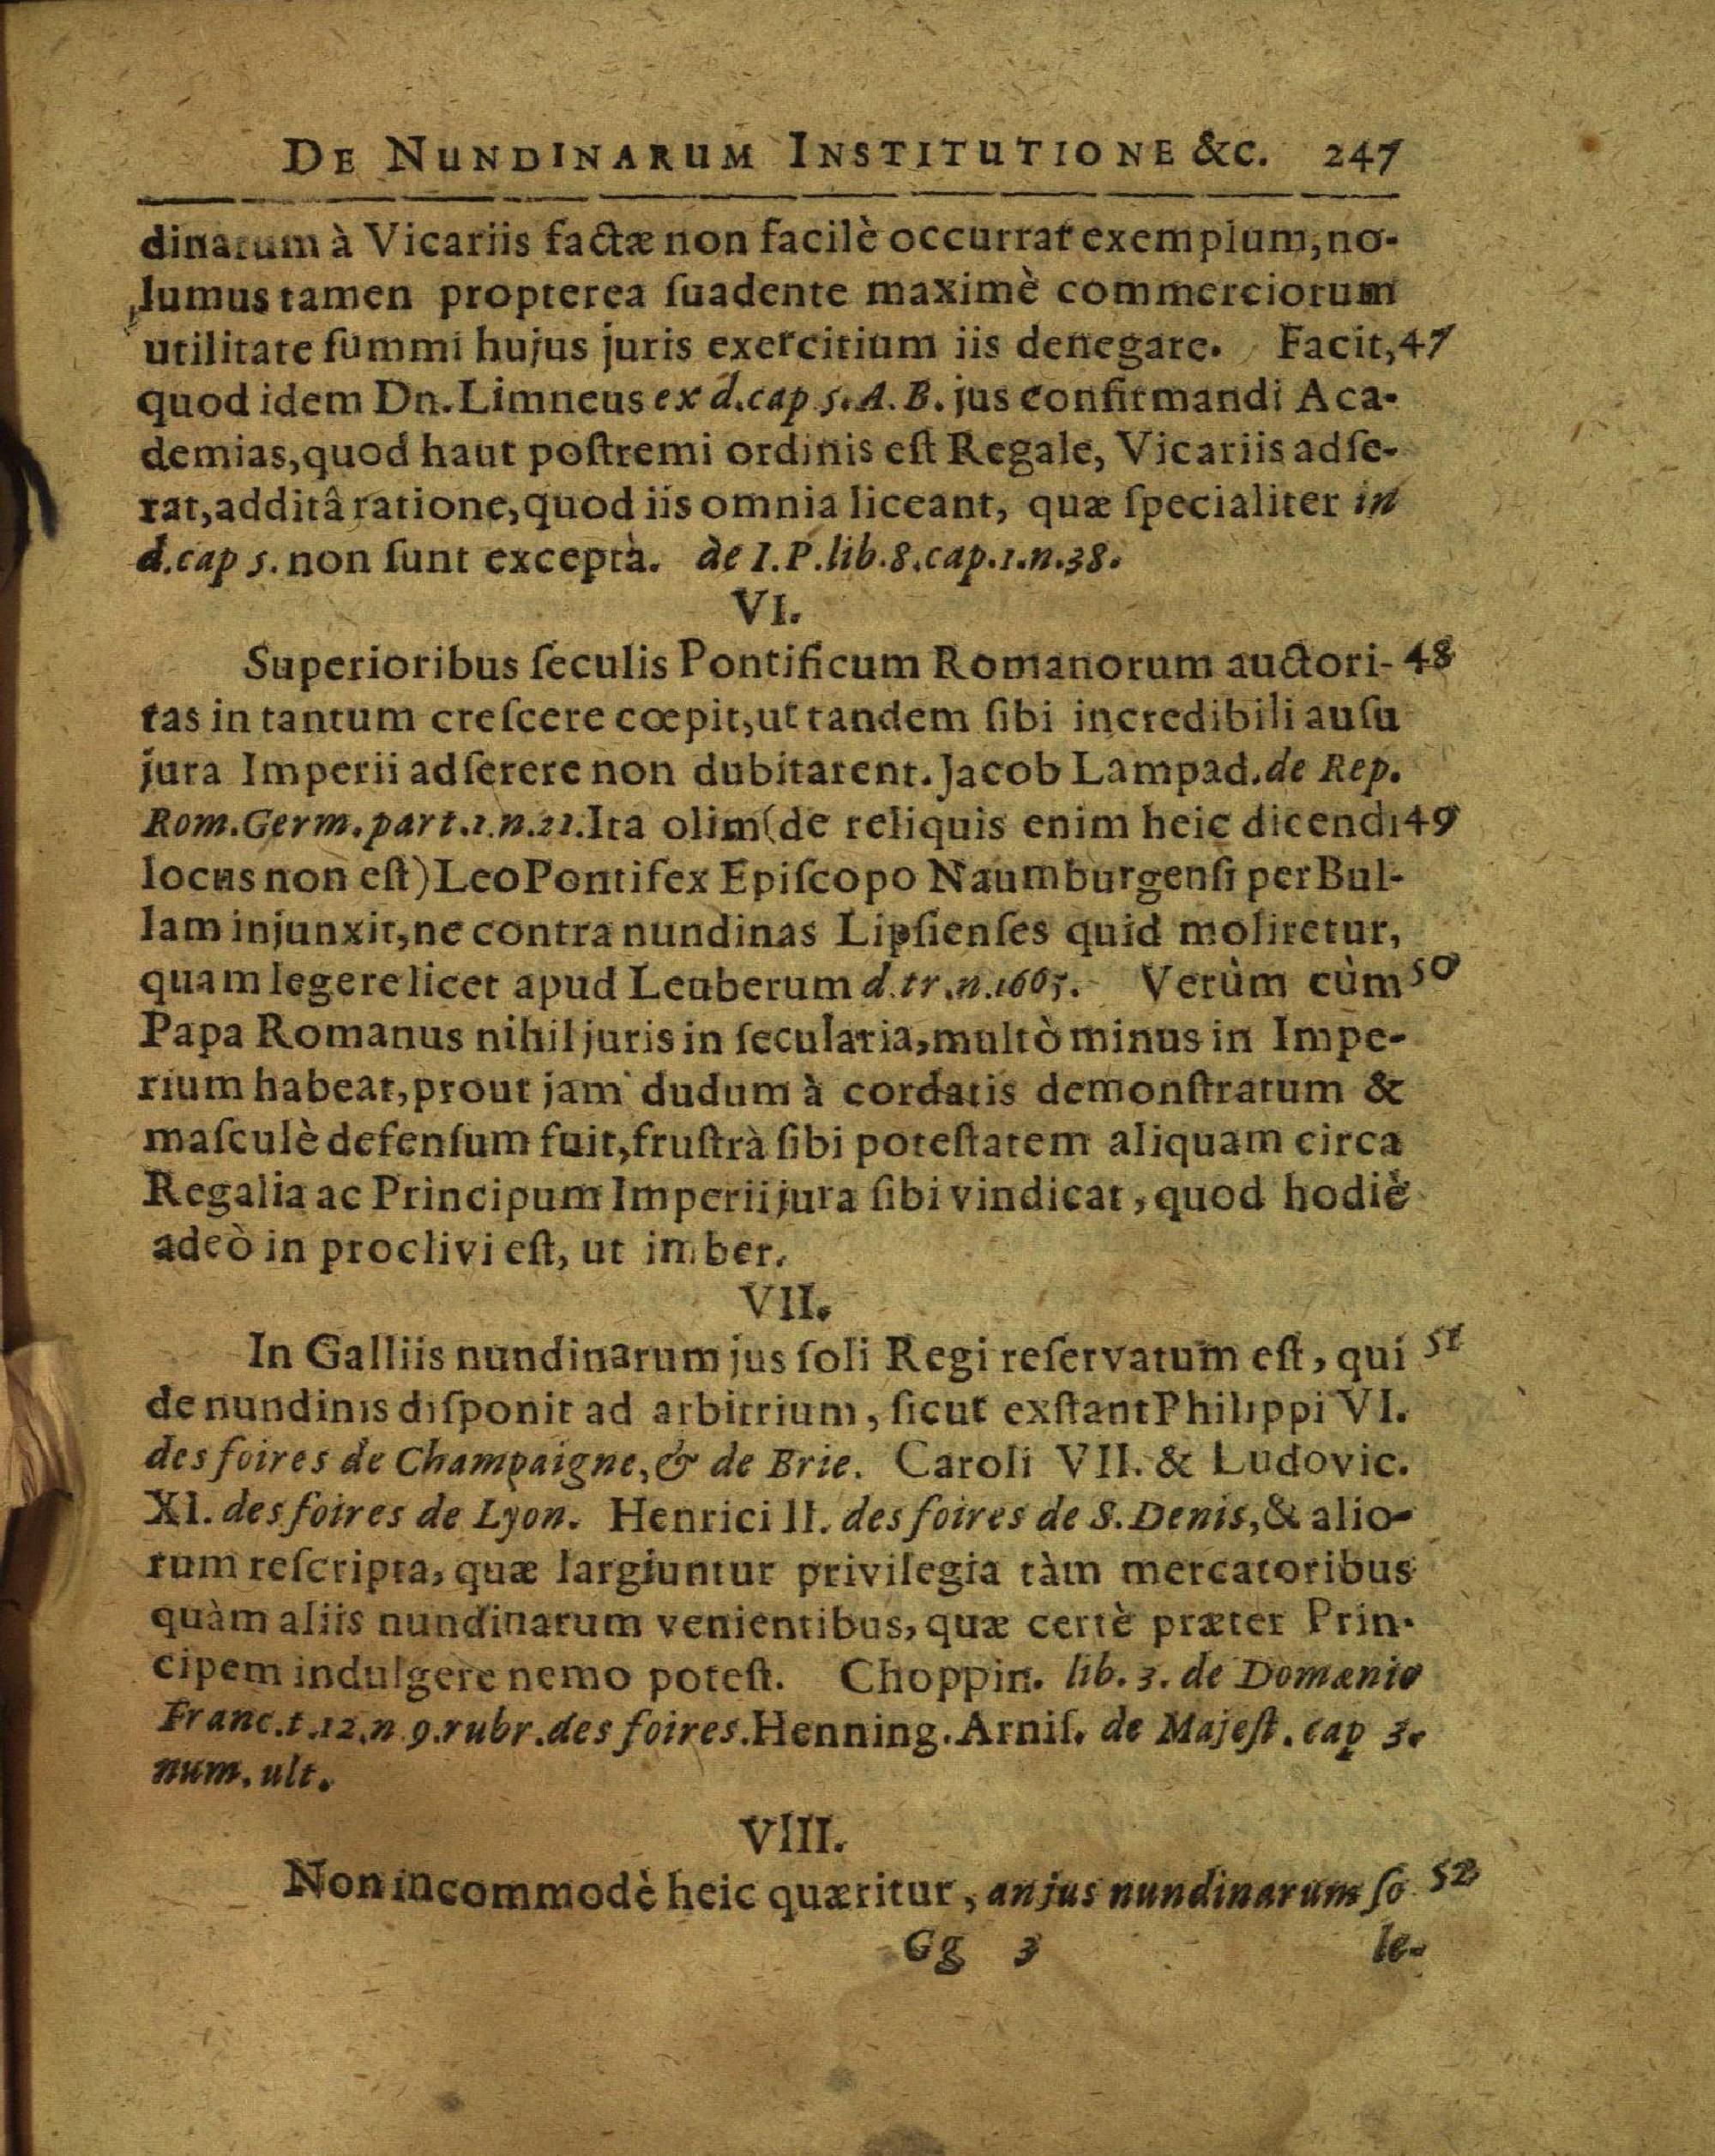 DE NUNDINARUM INSTITUTIONE &c. 247
dinarum à Vicariis factæ non facilè occurrat exemplum, no-
lumus tamen propterea ſuadente maximè commerciorum
utilitate ſummi hujus juris exercitium iis denegare. Facit, 47
quod idem Dn. Limneus ex d. cap 5. A. B. jus confirmandi Aca-
demias, quod haut poſtremi ordinis eſt Regale, Vicariis adſe-
rat, additâ ratione, quod iis omnia liceant, quæ ſpecialiter in
d. cap 5. non ſunt exceptà. de I. P. lib. 8. cap. 1. n. 38.
VI.
Superioribus ſeculis Pontificum Romanorum auctori- 48
tas in tantum creſcere cœpit, ut tandem ſibi incredibili auſu
jura Imperii adſerere non dubitarent. Jacob Lampad. de Rep.
Rom. Germ. part. 1. n. 21. Ita olim (de reliquis enim heic dicendi 49
locus non eſt) Leo Pontifex Epiſcopo Naumburgenſi per Bul-
lam injunxit, ne contra nundinas Lipſienſes quid moliretur,
quam legere licet apud Leuberum d. tr. n. 1665. Verùm cùm 50
Papa Romanus nihil juris in ſecularia, multò minus in Impe-
rium habeat, prout jam dudum à cordatis demonſtratum &
maſculè defenſum fuit, fruſtrà ſibi poteſtatem aliquam circa
Regalia ac Principum Imperii jura ſibi vindicat, quod hodiè
adeò in proclivi eſt, ut imber.
VII.
In Galliis nundinarum jus ſoli Regi reſervatum eſt, qui 51
de nundinis diſponit ad arbitrium, ſicut exſtant Philippi VI.
des foires de Champaigne, & de Brie. Caroli VII. & Ludovic.
XI. des foires de Lyon. Henrici II. des foires de S. Denis, & alio-
rum reſcripta, quæ largiuntur privilegia tàm mercatoribus
quàm aliis nundinarum venientibus, quæ certè præter Prin-
cipem indulgere nemo poteſt. Choppin. lib. 3. de Domænio
Franc. t. 12. n 9. rubr. des foires. Henning. Arniſ. de Majeſt. cap 3.
num. ult.
VIII.
Non incommodè heic quæritur, an jus nundinarum ſo 52
Gg 3 le-